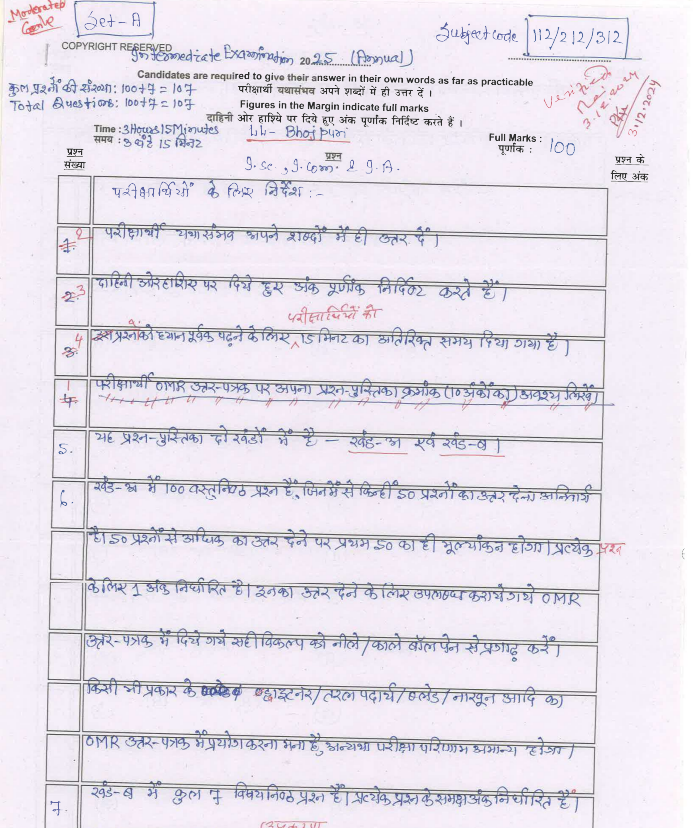 Moderated
Set-A
Subject code 112/212/312
COPYRIGHT RESERVED
Intermediate Examination 2025 (Annual)
Candidates are required to give their answer in their own words as far as practicable
कुल प्रश्नों की संख्या: 100+7 = 107
परीक्षार्थी यथासंभव अपने शब्दों में ही उत्तर दें ।
Total Questions: 100+7 = 107
Figures in the Margin indicate full marks
दाहिनी ओर हाशिये पर दिये हुए अंक पूर्णांक निर्दिष्ट करते हैं ।
Verified
3.12.2024
3.12.2024
Time : 3 Hours 15 Minutes
समय : 3 घंटे 15 मिनट
LL- Bhojpuri
Full Marks :
पूर्णांक : 100
प्रश्न संख्या
प्रश्न
I.Sc., I.Com. & I.A.
प्रश्न के लिए अंक
परीक्षार्थियों के लिए निर्देश :-
2 परीक्षार्थी यथासंभव अपने शब्दों में ही उत्तर दें ।
3 दाहिनी ओर हाशिए पर दिये हुए अंक पूर्णांक निर्दिष्ट करते हैं ।
परीक्षार्थियों को
4 प्रश्नों को ध्यान पूर्वक पढ़ने के लिए 15 मिनट का अतिरिक्त समय दिया गया है ।
1 परीक्षार्थी OMR उत्तर-पत्रक पर अपना प्रश्न-पुस्तिका क्रमांक (10 अंकों का) अवश्य लिखें
5. यह प्रश्न-पुस्तिका दो खंडों में है – खंड-अ एवं खंड-ब ।
6. खंड-अ में 100 वस्तुनिष्ठ प्रश्न हैं, जिनमें से किन्हीं 50 प्रश्नों का उत्तर देना अनिवार्य
है। 50 प्रश्नों से अधिक का उत्तर देने पर प्रथम 50 का ही मूल्यांकन होगा । प्रत्येक प्रश्न
के लिए 1 अंक निर्धारित है । इनका उत्तर देने के लिए उपलब्ध कराये गये OMR
उत्तर-पत्रक में दिये गये सही विकल्प को नीले / काले बॉल पेन से प्रगाढ़ करें ।
किसी भी प्रकार के ह्वाइटनर / तरल पदार्थ / ब्लेड / नाखून आदि का
OMR उत्तर-पत्रक में प्रयोग करना मना है, अन्यथा परीक्षा परिणाम अमान्य होगा ।
7. खंड-ब में कुल 7 विषयनिष्ठ प्रश्न हैं । प्रत्येक प्रश्न के समक्ष अंक निर्धारित है ।